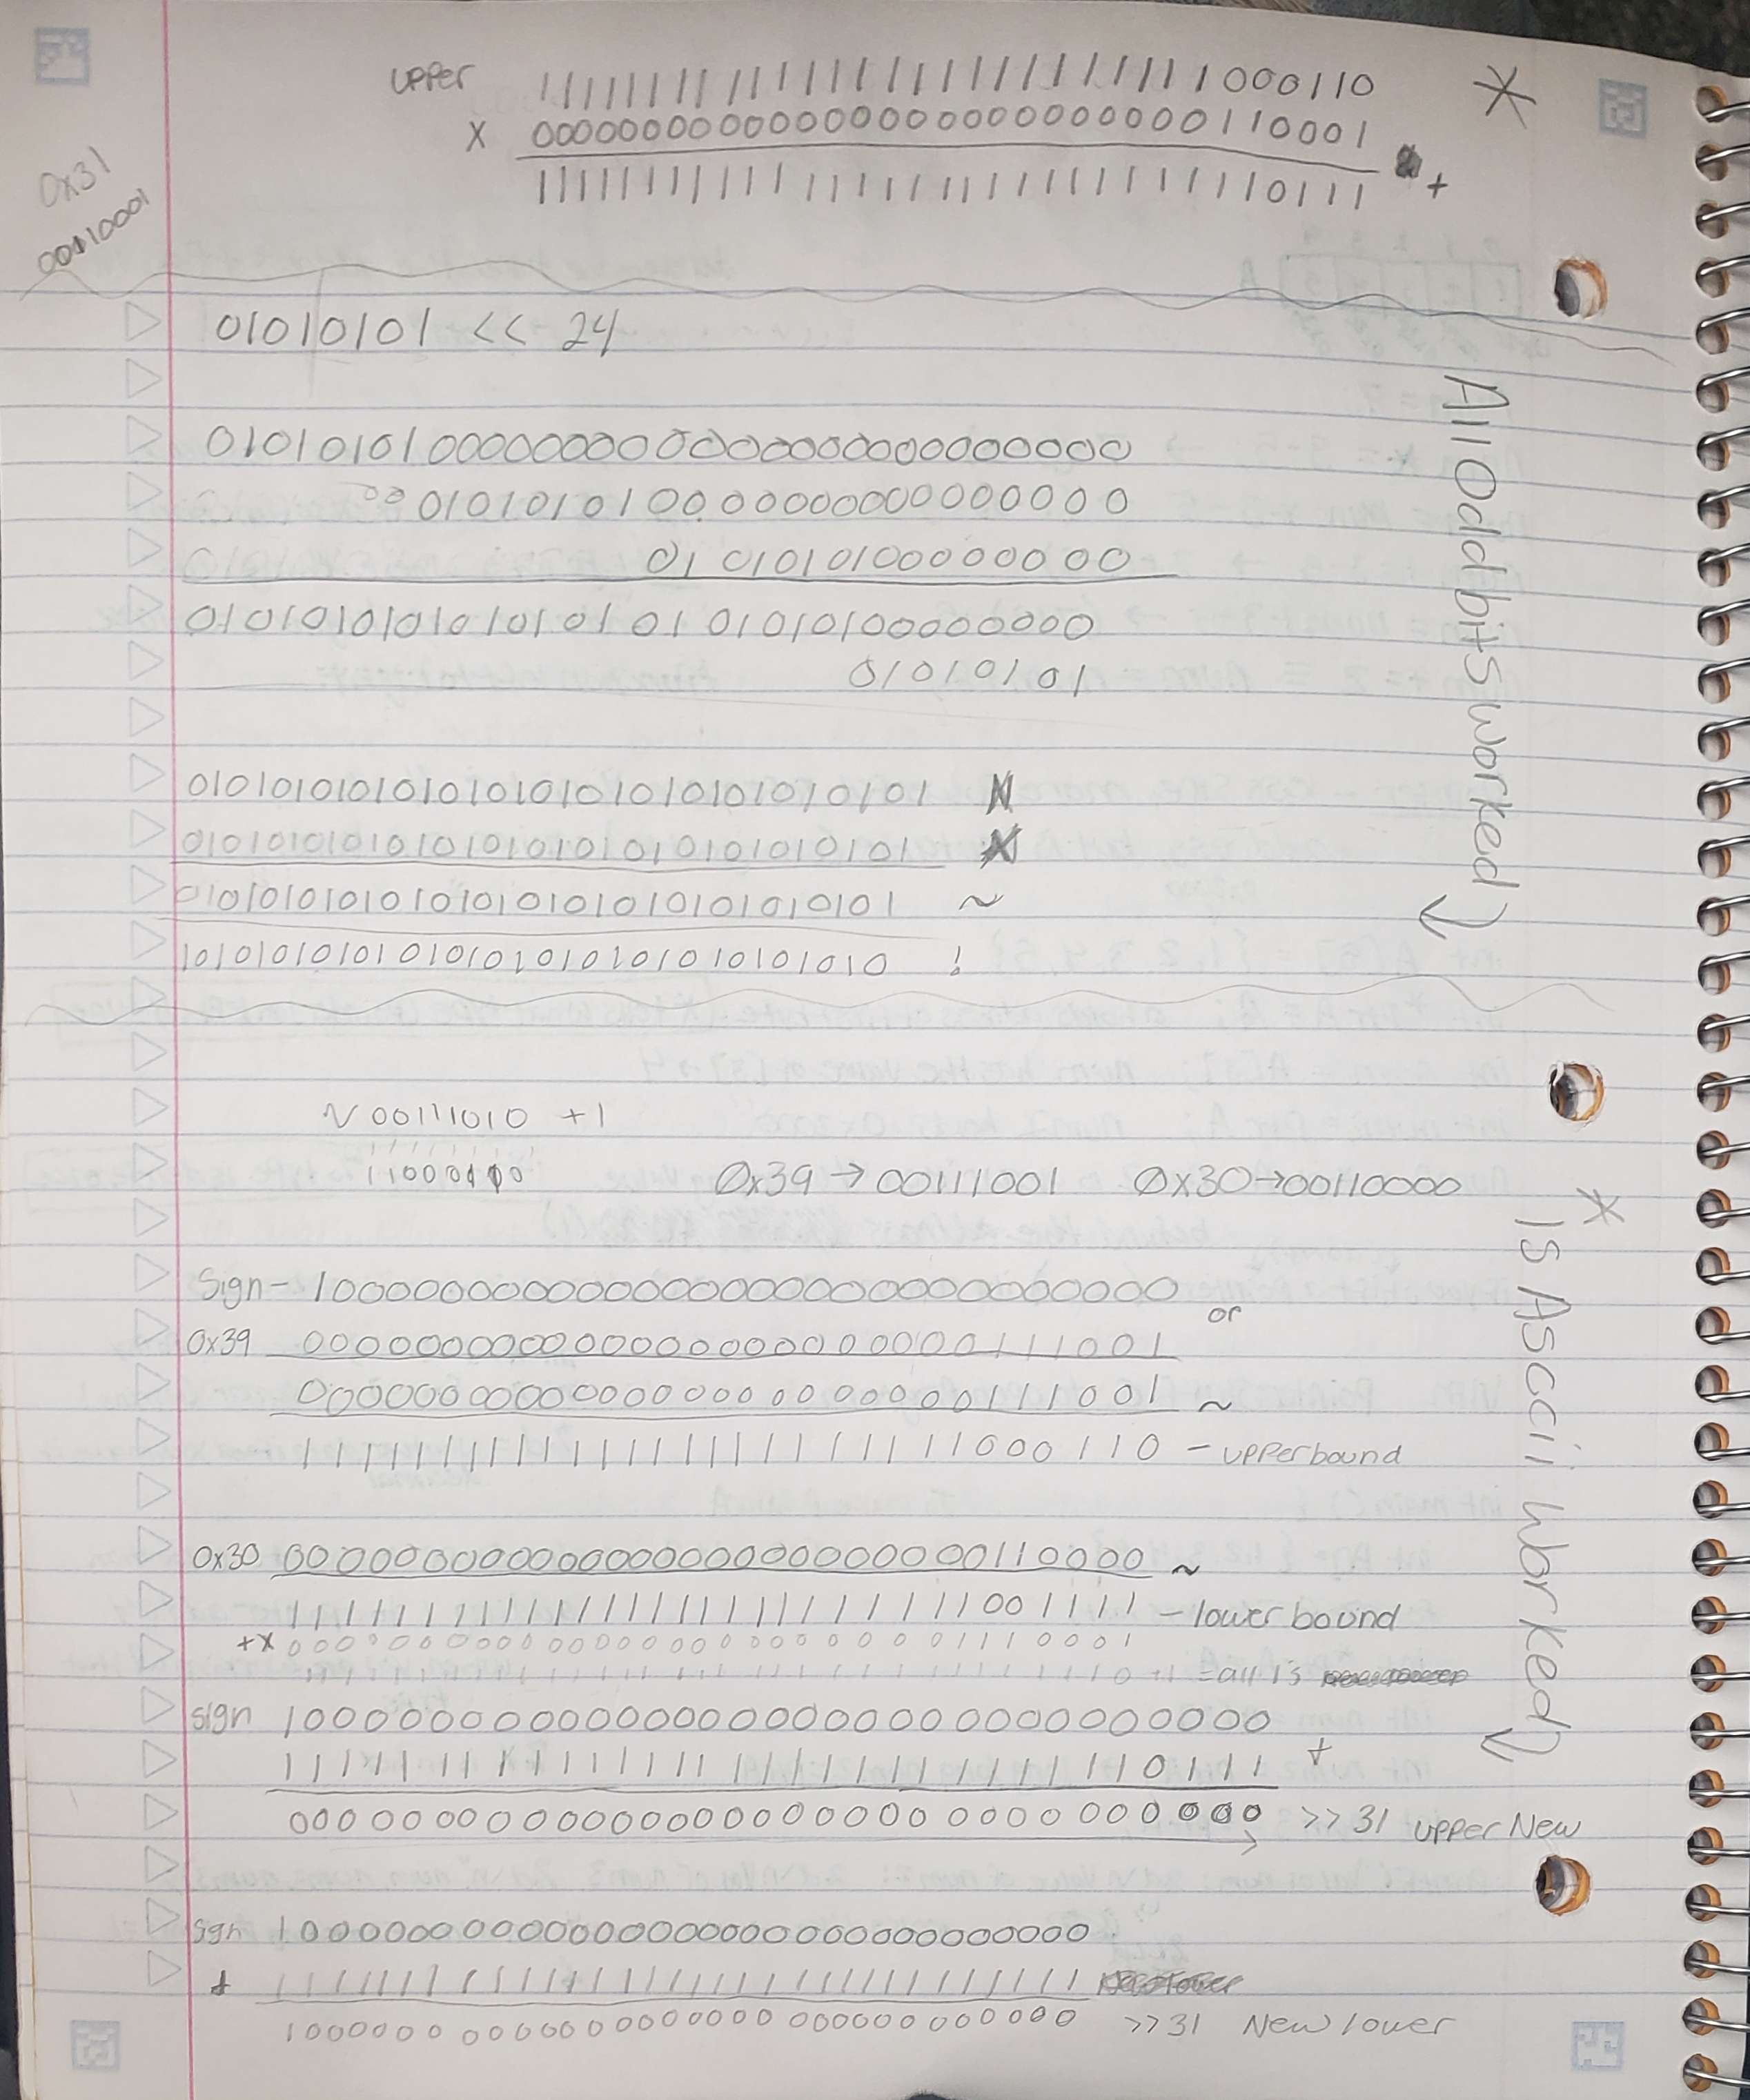 upper 11111111111111111111111111000110 *
X 00000000000000000000000000110001
11111111111111111111111111110111 +
0x31
00110001
01010101 << 24
01010101000000000000000000000000
00 010101010000000000000000
01 01010100000000
01010101010101010101010100000000
01010101
01010101010101010101010101010101
01010101010101010101010101010101
01010101010101010101010101010101 ~
10101010101010101010101010101010 !
AllOddbitsworked ↓
~ 00111010 +1
0x39 → 00111001 0x30→00110000
Sign - 10000000000000000000000000000000
or
0x39 00000000000000000000000000111001
00000000000000000000000000111001 ~
11111111111111111111111111000110 - upperbound
0x30 00000000000000000000000000110000 ~
11111111111111111111111111001111 - lower bound
+x 00000000000000000000000000110001
+1 = all 1s
sign 10000000000000000000000000000000
11111111111111111111111111110111 +
00000000000000000000000000000000 >>31 upper New
sgn 10000000000000000000000000000000
+ 11111111111111111111111111111111
10000000000000000000000000000000 >>31 New lower
* IS Ascii worked ↓